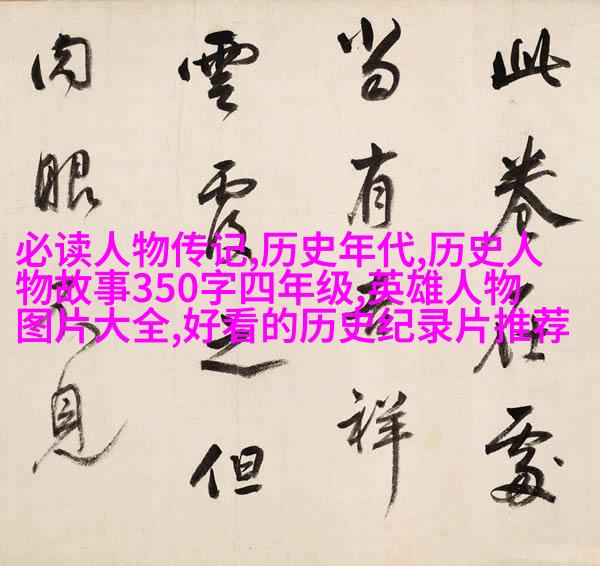 此卷在處
當有吉祥
雲覆之但
肉眼不見
必读人物传记,历史年代,历史人
物故事350字四年级,英雄人物
图片大全,好看的历史纪录片推荐